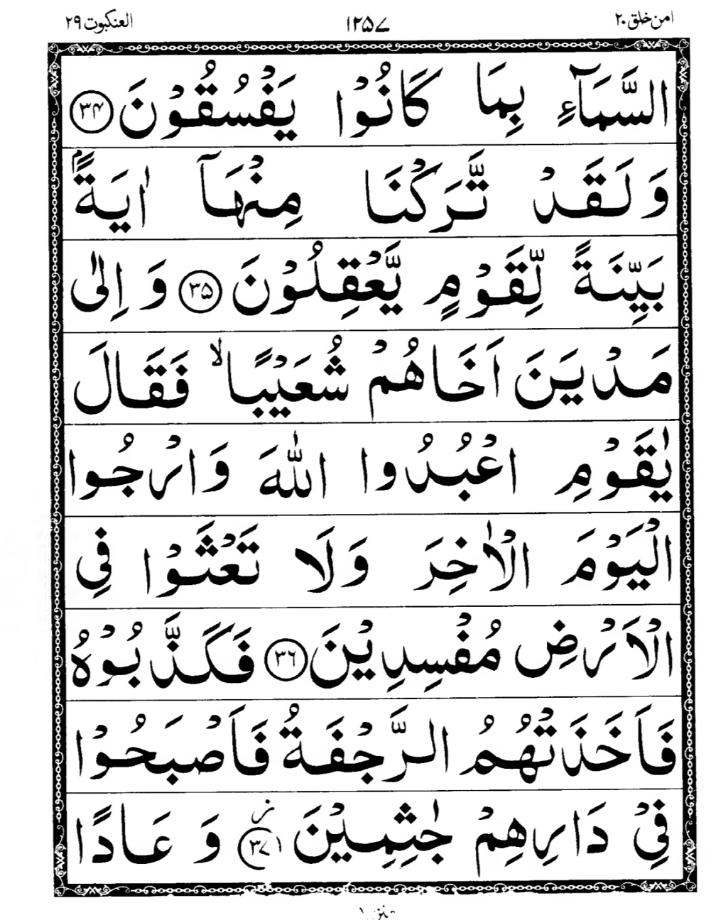 امن خلق ۲۰ ۱۲۵۷ العنکبوت ۲۹
السَّمَآءِ بِمَا كَانُوْا يَفْسُقُوْنَ ﴿۳۴﴾
وَلَقَدْ تَّرَكْنَا مِنْهَآ اٰيَةًۢ
بَيِّنَةً لِّقَوْمٍ يَّعْقِلُوْنَ ﴿۳۵﴾ وَ اِلٰى
مَدْيَنَ اَخَاهُمْ شُعَيْبًا ۙ فَقَالَ
يٰقَوْمِ اعْبُدُوا اللّٰهَ وَارْجُوا
الْيَوْمَ الْاٰخِرَ وَلَا تَعْثَوْا فِي
الْاَرْضِ مُفْسِدِيْنَ ﴿۳۶﴾ فَكَذَّبُوْهُ
فَاَخَذَتْهُمُ الرَّجْفَةُ فَاَصْبَحُوْا
فِيْ دَارِهِمْ جٰثِمِيْنَ ﴿۳۷﴾ ز وَ عَادًا